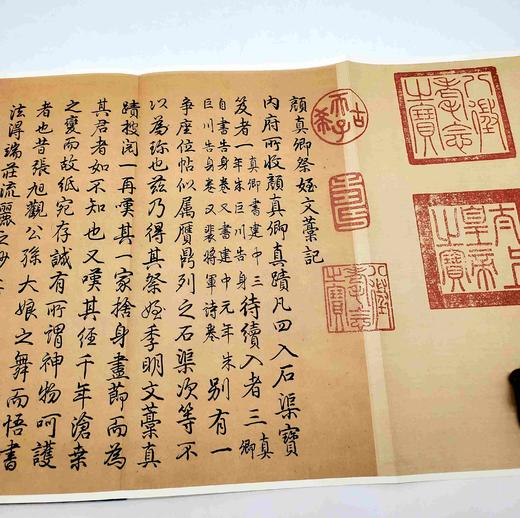 八徵耄念之寶
太上皇帝之寶
古希天子
八徵耄念之寶
顏真卿祭姪文藁記
內府所收顏真卿真蹟凡四入石渠寶
笈者一真卿書建中三年朱巨川告身待續入者三真卿
自書告身卷又書建中元年朱巨川告身卷又裴將軍詩卷別有一
爭座位帖似属贗鼎列之石渠次等不
以為珍也兹乃得其祭姪季明文藁真
蹟披閱一再嘆其一家捨身盡節而為
其君者如不知也又嘆其經千年滄桒
之變而故紙宛存誠有所謂神物呵護
者也昔張旭觀公孫大娘之舞而悟書
法得端莊流麗之妙